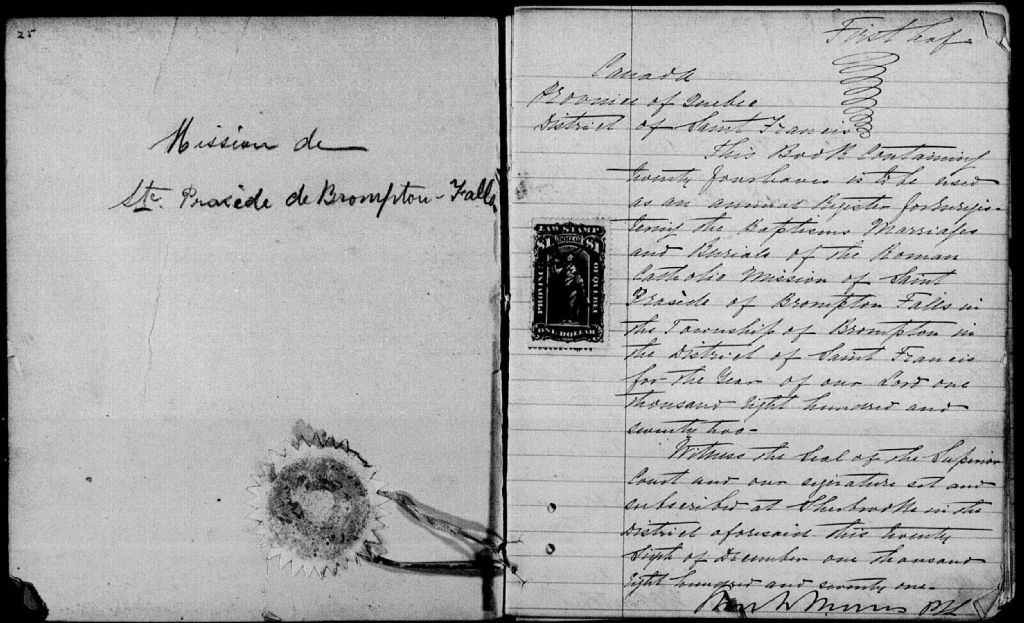 25
Mission de
Ste. Praxède de Brompton-Falls
First leaf
Canada
Province of Quebec
District of Saint Francis
This Book Containing
twenty four leaves is to be used
as an annual Register for Regis-
tering the Baptisms Marriages
and Burials of the Roman
Catholic Mission of Saint
Praxède of Brompton Falls in
the Township of Brompton in
the District of Saint Francis
for the Year of our Lord one
thousand Eight hundred and
seventy two-
Witness the Seal of the Superior
Court and our signature set and
subscribed at Sherbrooke in the
District aforesaid this twenty
Sixth of December one thousand
Eight hundred and seventy one-
LAW STAMP
$1 DOLLAR $1
PROVINCE
OF QUEBEC
ONE DOLLAR